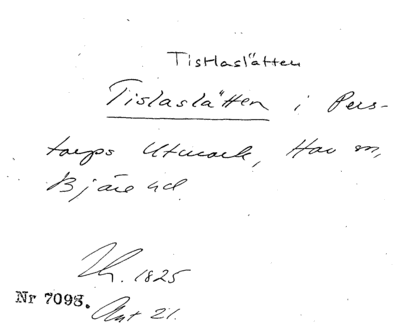 Tistlaslätten
Tislaslätten i Pers-
torps Utmark, Hov sn,
Bjäre hd.
Th. 1825
Nr 7098.
Ant 21.